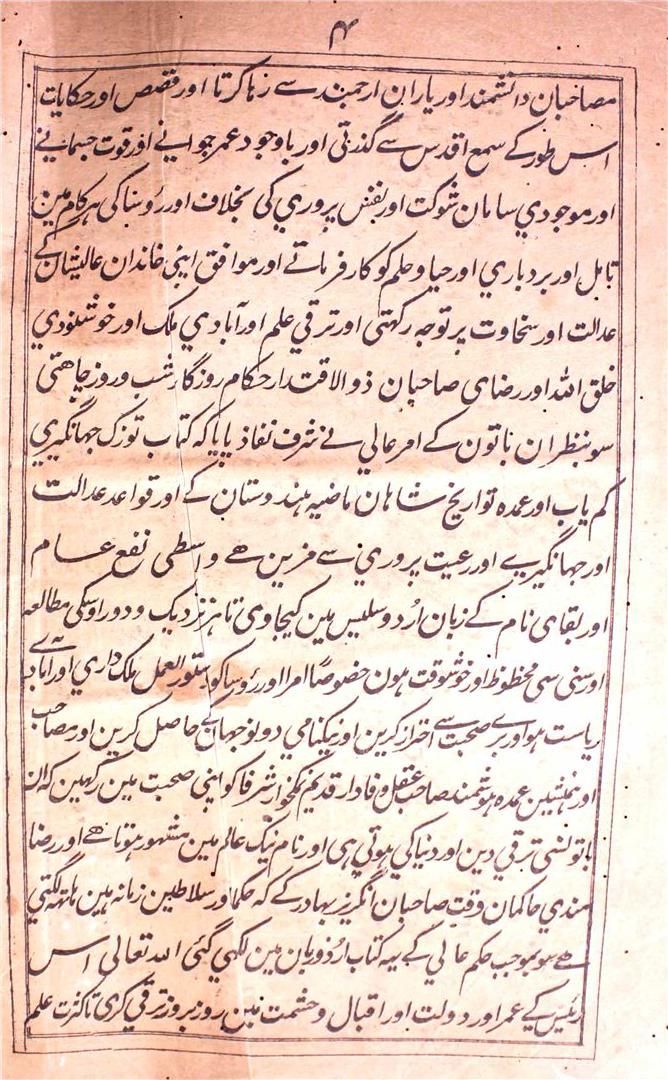 ۴
مصاحبان دانشمند اور یاران ارجمند سے رہا کرتا اور قصص اور حکایات
اس طور کے سمع اقدس سے گذرتی اور باوجود عمر جوانے اور قوت جسمانے
اور موجودي سامان شوکت اور نفس پروري کی بخلاف اور رؤسا کی ہر کام مین
تامل اور بردباري اور حیا و حلم کو کار فرماتے اور موافق اپنی خاندان عالیشان کے
عدالت اور سخاوت پر توجہ رکھتی اور ترقي علم اور آبادي ملک اور خوشنودي
خلق اللہ اور رضای صاحبان ذوالاقتدار حکام روزگار شب و روز چاھتی
سو بنظر ان باتون کے امر عالي نے شرف نفاذ پایا کہ کتاب توزک جہانگیري
کم یاب اور عمدہ تواریخ شاہان ماضیہ ہندوستان کے اور قواعد عدالت
اور جہانگیرے اور رعیت پروري سے مزین ھے واسطی نفع عام
اور بقای نام کے زبان اردو سلیس مین کیجاوی تا ہر نزدیک و دور اوسکی مطالعہ
اور سنی سی محظوظ اور خوشوقت ہون خصوصًا امرا اور رؤسا کو دستور العمل ملک داري اور آبادے
ریاست ہو اور برے صحبت سے احتراز کرین اور نیکنامي دونو جہان کے حاصل کرین اور مصاحب
اور ہمنشین عمدہ ہوشمند صاحب عقل وفادار قدیم نمکخوار شرفا کو اپنی صحبت مین رکہین کہ ان
باتونسی ترقي دین اور دنیا کي ہوتي ہی اور نام نیک عالم مین مشہور ہوتا ھے اور رضا
مندي حاکمان وقت صاحبان انگریز بہادر کے کہ حکما اور سلاطین زمانہ ہین ہاتہہ لگتي
ھے سو بموجب حکم عالي کے یہ کتاب اردو زبان مین لکھي گئی اللہ تعالی اس
رئیس کے عمر اور دولت اور اقبال و حشمت مین روز بروز ترقي کري تا کثرت علم